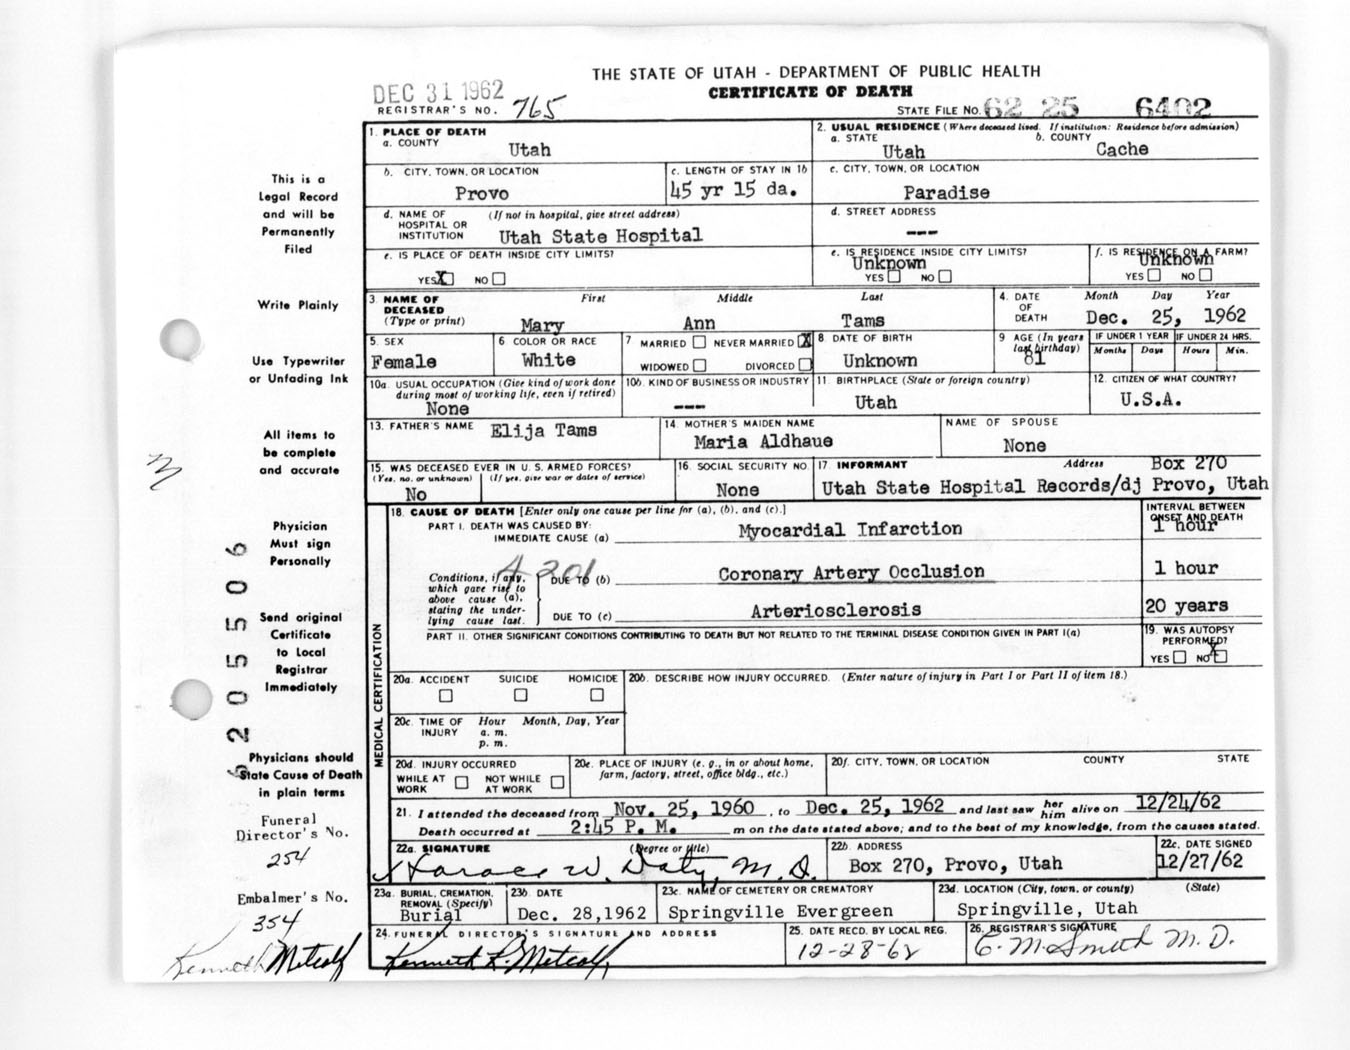 THE STATE OF UTAH - DEPARTMENT OF PUBLIC HEALTH
CERTIFICATE OF DEATH
DEC 31 1962
REGISTRAR'S NO. 765
STATE FILE NO. 62 25 6402
This is a
Legal Record
and will be
Permanently
Filed
Write Plainly
Use Typewriter
or Unfading Ink
All items to
be complete
and accurate
Physician
Must sign
Personally
Send original
Certificate
to Local
Registrar
Immediately
Physicians should
State Cause of Death
in plain terms
Funeral
Director's No.
254
Embalmer's No.
354
Kenneth Metcalf
1. PLACE OF DEATH
a. COUNTY Utah
2. USUAL RESIDENCE (Where deceased lived. If institution: Residence before admission)
a. STATE Utah b. COUNTY Cache
b. CITY, TOWN, OR LOCATION Provo
c. LENGTH OF STAY IN 1b 45 yr 15 da.
c. CITY, TOWN, OR LOCATION Paradise
d. NAME OF HOSPITAL OR INSTITUTION (If not in hospital, give street address) Utah State Hospital
d. STREET ADDRESS ---
e. IS PLACE OF DEATH INSIDE CITY LIMITS?
YES X NO
e. IS RESIDENCE INSIDE CITY LIMITS?
Unknown
YES NO
f. IS RESIDENCE ON A FARM?
Unknown
YES NO
3. NAME OF DECEASED (Type or print)
First Middle Last
Mary Ann Tams
4. DATE OF DEATH Month Day Year
Dec. 25, 1962
5. SEX
Female
6 COLOR OR RACE
White
7 MARRIED NEVER MARRIED X
WIDOWED DIVORCED
8. DATE OF BIRTH
Unknown
9 AGE (In years last birthday)
81
IF UNDER 1 YEAR IF UNDER 24 HRS.
Months Days Hours Min.
10a. USUAL OCCUPATION (Give kind of work done during most of working life, even if retired)
None
10b. KIND OF BUSINESS OR INDUSTRY
---
11. BIRTHPLACE (State or foreign country)
Utah
12. CITIZEN OF WHAT COUNTRY?
U.S.A.
13. FATHER'S NAME Elija Tams
14. MOTHER'S MAIDEN NAME
Maria Aldhaue
NAME OF SPOUSE
None
15. WAS DECEASED EVER IN U. S. ARMED FORCES?
(Yes, no, or unknown) (If yes, give war or dates of service)
No
16. SOCIAL SECURITY NO.
None
17. INFORMANT Address Box 270
Utah State Hospital Records/dj Provo, Utah
MEDICAL CERTIFICATION
18. CAUSE OF DEATH [Enter only one cause per line for (a), (b), and (c).]
PART I. DEATH WAS CAUSED BY:
IMMEDIATE CAUSE (a) Myocardial Infarction
INTERVAL BETWEEN ONSET AND DEATH
1 hour
Conditions, if any, which gave rise to above cause (a), stating the underlying cause last.
4201
DUE TO (b) Coronary Artery Occlusion 1 hour
DUE TO (c) Arteriosclerosis 20 years
PART II. OTHER SIGNIFICANT CONDITIONS CONTRIBUTING TO DEATH BUT NOT RELATED TO THE TERMINAL DISEASE CONDITION GIVEN IN PART I(a)
19. WAS AUTOPSY PERFORMED?
YES NO X
20a. ACCIDENT SUICIDE HOMICIDE
20b. DESCRIBE HOW INJURY OCCURRED. (Enter nature of injury in Part I or Part II of item 18.)
20c. TIME OF INJURY Hour Month, Day, Year
a. m.
p. m.
20d. INJURY OCCURRED
WHILE AT WORK NOT WHILE AT WORK
20e. PLACE OF INJURY (e. g., in or about home, farm, factory, street, office bldg., etc.)
20f. CITY, TOWN, OR LOCATION COUNTY STATE
21. I attended the deceased from Nov. 25, 1960, to Dec. 25, 1962 and last saw her him alive on 12/24/62
Death occurred at 2:45 P. M. m on the date stated above; and to the best of my knowledge, from the causes stated.
22a. SIGNATURE (Degree or title)
Horace W. Daty, M. D.
22b. ADDRESS
Box 270, Provo, Utah
22c. DATE SIGNED
12/27/62
23a. BURIAL, CREMATION, REMOVAL (Specify)
Burial
23b. DATE
Dec. 28,1962
23c. NAME OF CEMETERY OR CREMATORY
Springville Evergreen
23d. LOCATION (City, town, or county) (State)
Springville, Utah
24. FUNERAL DIRECTOR'S SIGNATURE AND ADDRESS
Kenneth L. Metcalf
25. DATE RECD. BY LOCAL REG.
12-28-62
26. REGISTRAR'S SIGNATURE
C. M. Smith M. D.